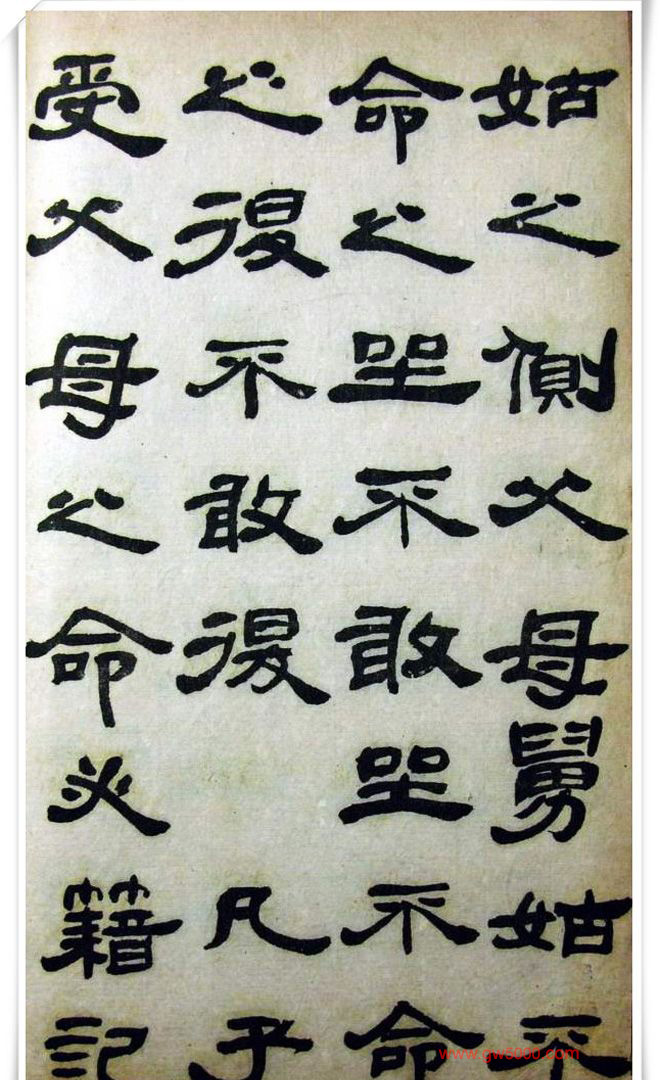 姑之側父母舅姑不
命之坐不敢坐不命
之退不敢退 凡子
受父母之命必籍記